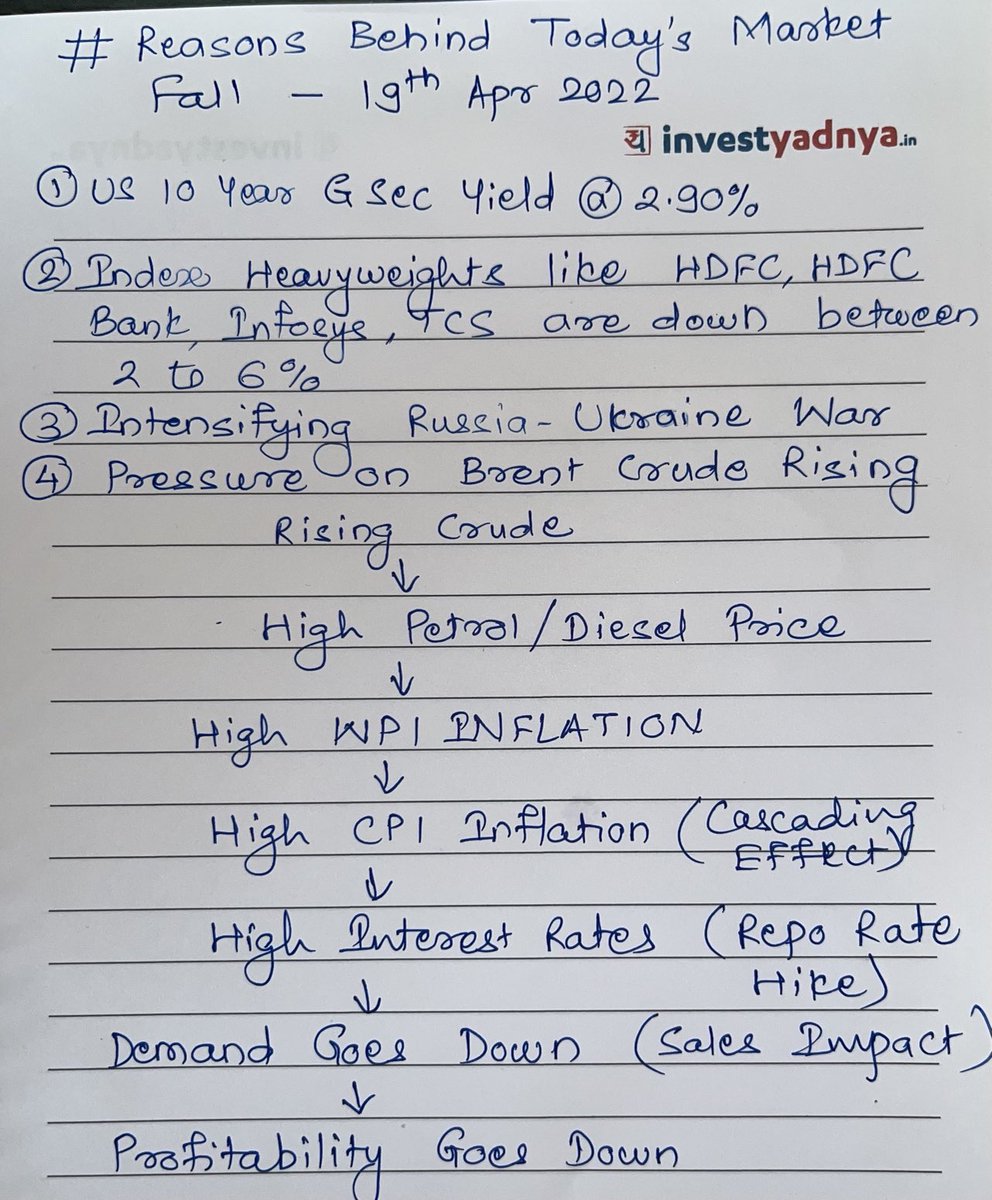 # Reasons Behind Today's Market
Fall - 19th Apr 2022
य investyadnya.in
① US 10 Year G Sec Yield @ 2.90%
② Index Heavyweights like HDFC, HDFC
Bank, Infosys, TCS are down between
2 to 6%
③ Intensifying Russia-Ukraine War
④ Pressure on Brent Crude Rising
Rising Crude
↓
High Petrol/Diesel Price
↓
High WPI INFLATION
↓
High CPI Inflation (Cascading
Effect)
↓
High Interest Rates (Repo Rate
Hike)
↓
Demand Goes Down (Sales Impact)
↓
Profitability Goes Down